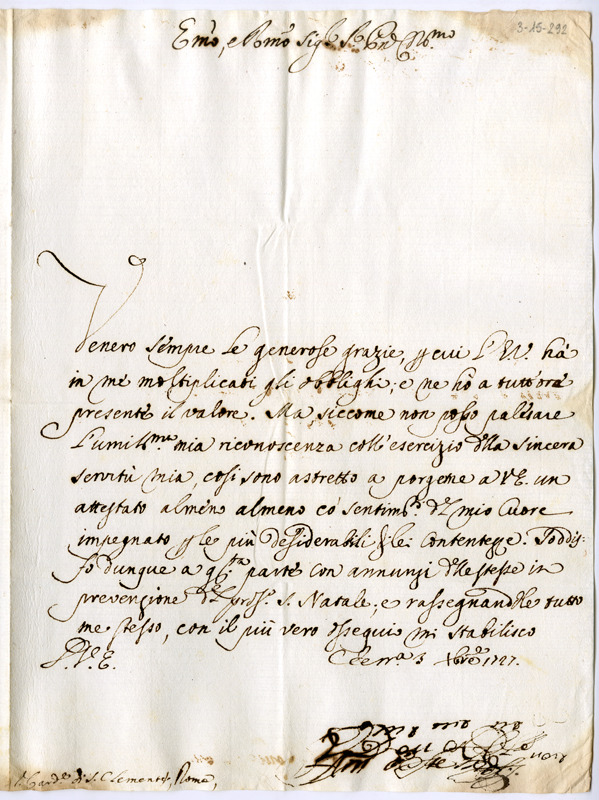 3-15-292
Emo, e Rmo Sig.r
Venero sempre le generose grazie, p cui l'E.V. hà
in me moltiplicati gli obblighi; e ne hò a tutt'ora
presente il valore. Ma siccome non posso palesare
l'umil.ma mia riconoscenza coll'esercizio dlla sincera
servitù mia, così sono astretto a porgerne a V.E. un
attestato almeno almeno co' sentim.ti dl mio Cuore
impegnato p le più desiderabili contentezze. Soddis-
fo dunque a q.ta parte con annunzj dlle stesse in
prevenzione dl pross.o S. Natale; e rassegnandole tutto
me stesso, con il più vero ossequio mi stabilisco
D.V.E. 3 Xbre 1727.
di S. Clemente, Roma,